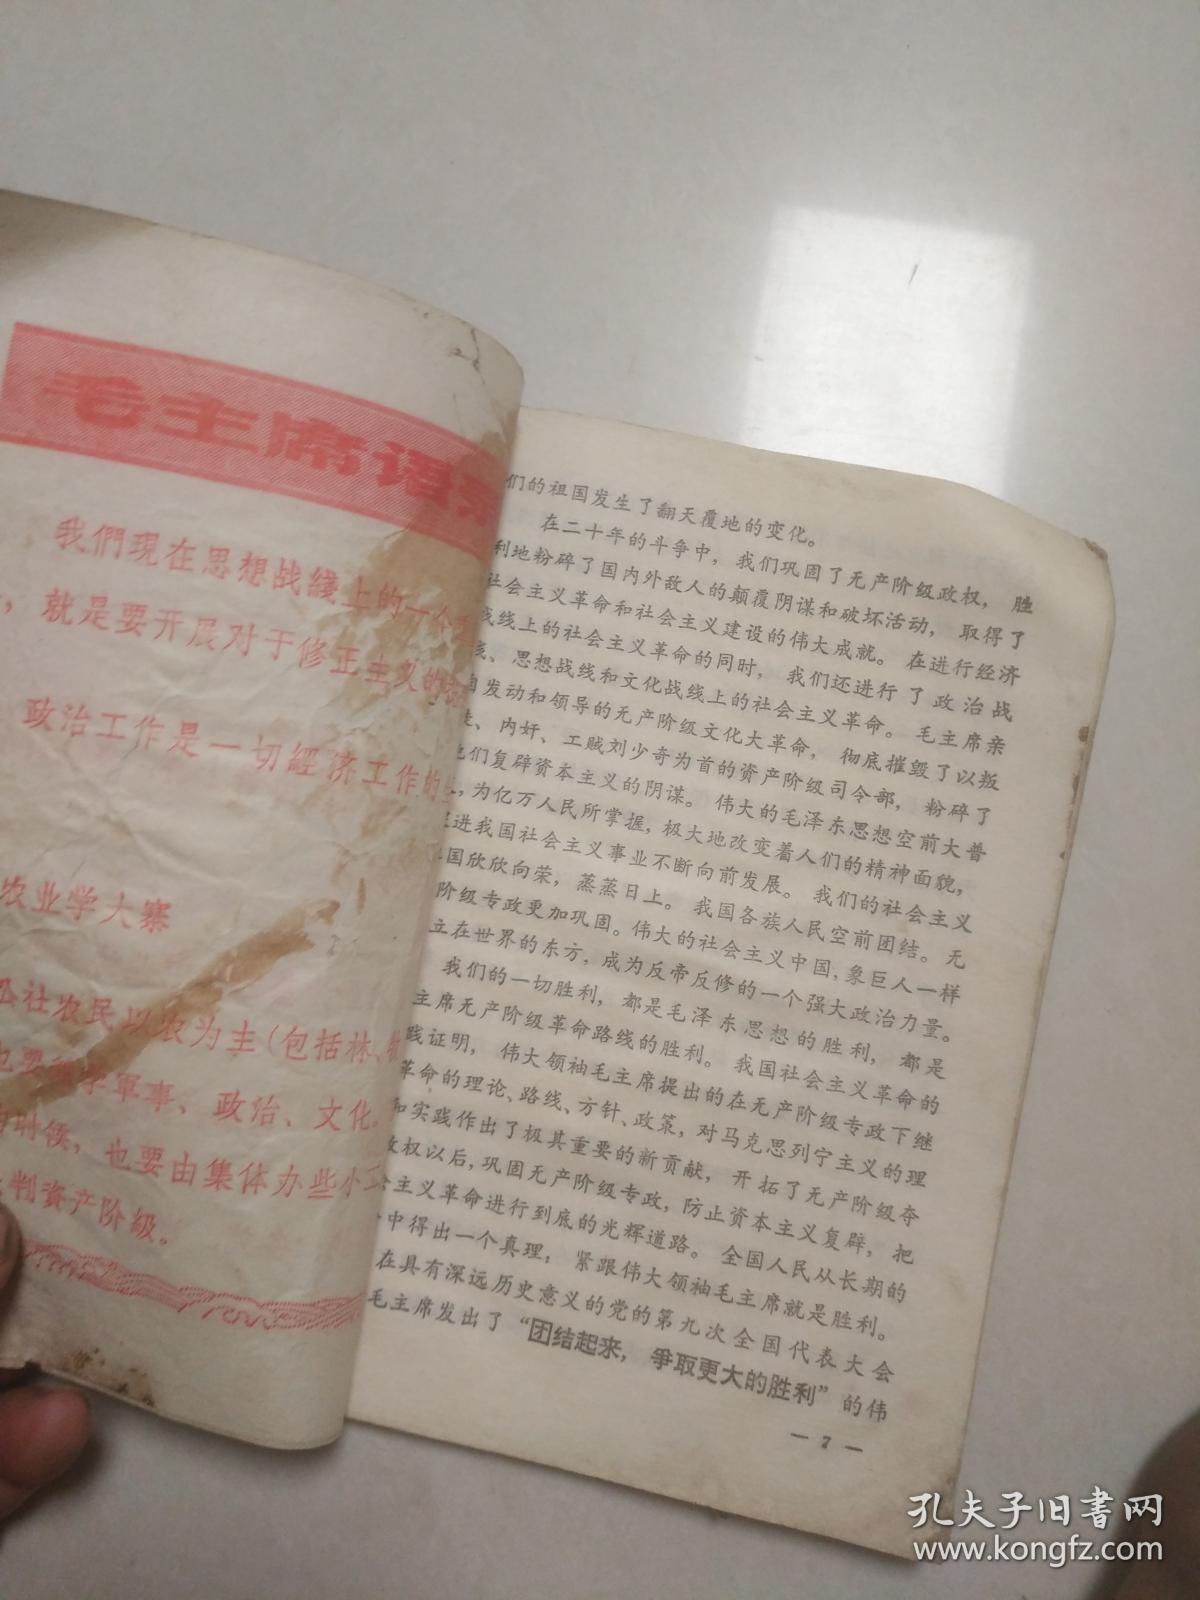 毛主席语录
我們現在思想战綫上的一个
，就是要开展对于修正主义的
政治工作是一切經济工作的
农业学大寨
公社农民以农为主（包括林、
也要兼学軍事、政治、文化。
的时候，也要由集体办些小工
判資产阶級。
们的祖国发生了翻天覆地的变化。
在二十年的斗争中，我们巩固了无产阶级政权，胜
利地粉碎了国内外敌人的颠覆阴谋和破坏活动，取得了
社会主义革命和社会主义建设的伟大成就。在进行经济
战线上的社会主义革命的同时，我们还进行了政治战
、思想战线和文化战线上的社会主义革命。毛主席亲
自发动和领导的无产阶级文化大革命，彻底摧毁了以叛
、内奸、工贼刘少奇为首的资产阶级司令部，粉碎了
他们复辟资本主义的阴谋。伟大的毛泽东思想空前大普
，为亿万人民所掌握，极大地改变着人们的精神面貌，
进我国社会主义事业不断向前发展。我们的社会主义
国欣欣向荣，蒸蒸日上。我国各族人民空前团结。无
阶级专政更加巩固。伟大的社会主义中国，象巨人一样
立在世界的东方，成为反帝反修的一个强大政治力量。
我们的一切胜利，都是毛泽东思想的胜利，都是
主席无产阶级革命路线的胜利。我国社会主义革命的
践证明，伟大领袖毛主席提出的在无产阶级专政下继
革命的理论、路线、方针、政策，对马克思列宁主义的理
和实践作出了极其重要的新贡献，开拓了无产阶级夺
政权以后，巩固无产阶级专政，防止资本主义复辟，把
会主义革命进行到底的光辉道路。全国人民从长期的
中得出一个真理，紧跟伟大领袖毛主席就是胜利。
在具有深远历史意义的党的第九次全国代表大会
毛主席发出了“团结起来，争取更大的胜利”的伟
— 7 —
孔夫子旧书网
www.kongfz.com